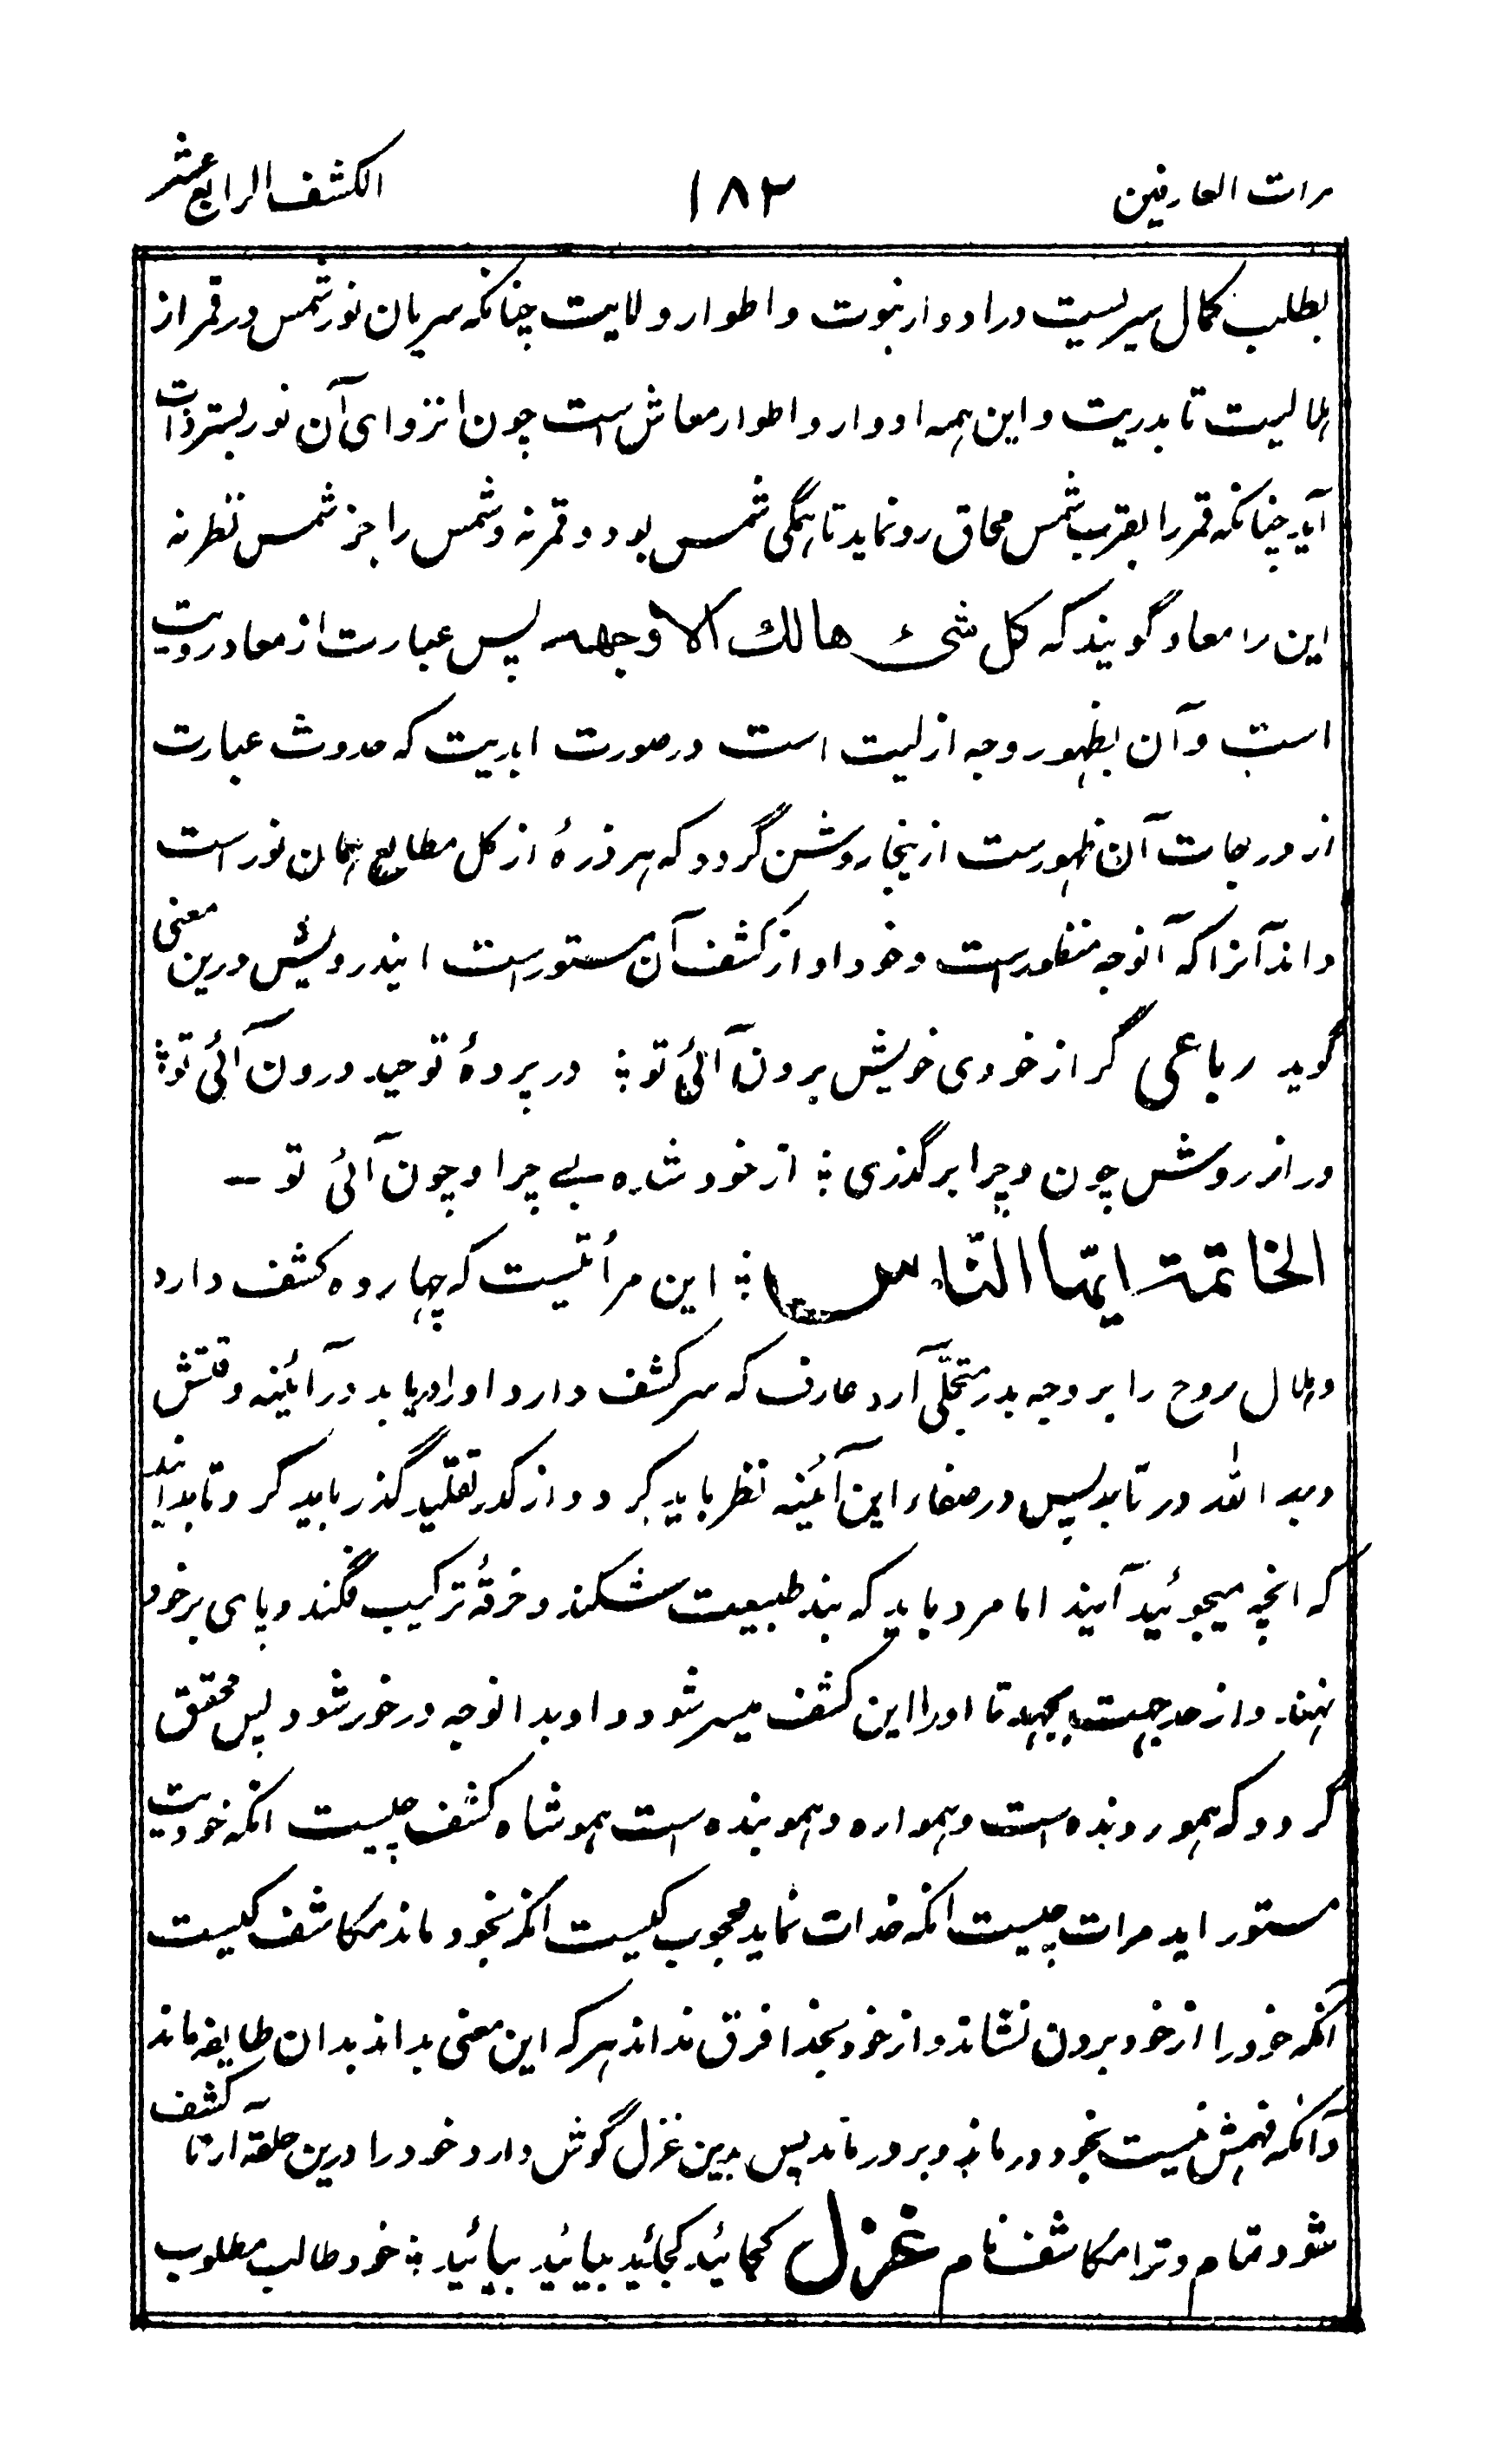 مرات العارفین ۱۸۲ الکشف الرابع عشر
بطلب کمال سیریست در ادوار نبوت و اطوار ولایت چنانکه سریان نور شمس در قمر از
هلالیت تا بدریت و این همه ادوار و اطوار معاش است چون انزوای آن نور بستر ذات
آید چنانکه قمر را بقرب شمس محاق رو نماید تا همگی شمس بود و قمر نه و شمس را جز شمس نظر نه
این را معاد گویند که کل شیء هالك الا وجهه پس عبارت از معاد رویت
است و آن بظهور وجه ازلیت است در صورت ابدیت که حدوث عبارت
از درجات آن ظهورست ازینجا روشن گردد که هر ذرۀ از کل مطالع همان نور است
داند آنرا که آنوجه منظورست و خود او از کشف آن مستورست ایندرویش درین معنی
گوید رباعی گر از خودی خویش برون آئی تو ؛ در پردۀ توحید درون آئی تو ؛
ور از روش چون و چرا برگذری ؛ از خود شده بے چرا و چون آئی تو ــ
الخاتمة ایها الناس ؛ این مرأتیست که چهارده کشف دارد
و هلال روح را بر وجه بدر متجلّی آرد عارف که سر کشف دارد او را دریابد در آئینه وقتش
وجه الله در تابد پس در صفاء این آئینه نظر باید کرد و از کدر تقلید گذر باید کرد تا بدانید
که انچه میجوئید آنید اما مرد باید که بند طبیعت شکند و خرقۀ ترکیب فگند و پای بر خود
نهند و از حد جهت بجهد تا او را این کشف میسر شود و او بدانوجه در خور شود پس محقق
گردد که همو رونده است و همو راه و همو بنده است همو شاه کشف چیست انکه خودیت
مستور اید مرات چیست انکه خدات نماید محجوب کیست انکه بخود ماند مکاشف کیست
آنکه خود را از خود برون نشاند و از خود بخدا فرق نداند هر که این معنی بداند بدان طایفه ماند
و آنکه فهمش نیست بخود درماند و بر در ماند پس بدین غزل گوش دارد خود را درین حلقه آر تا کشف
شود تمام و ترا مکاشف نام غزل کجائید کجائید بیائید بیائید ؛ خود طالب مطلوب